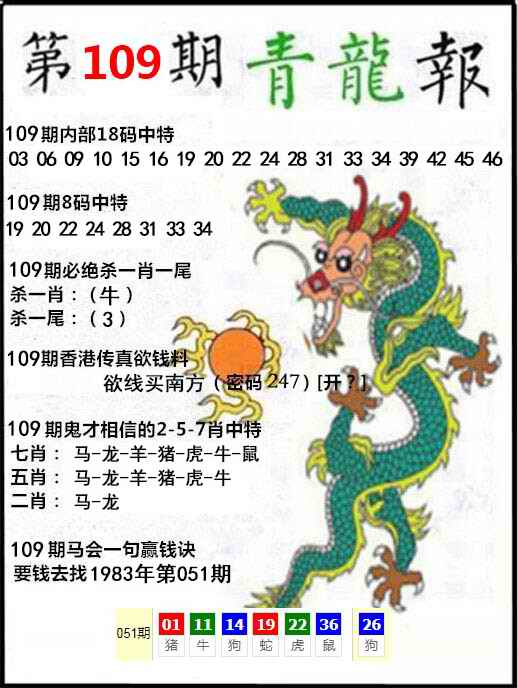 第109期青龍報
109期内部18码中特
03 06 09 10 15 16 19 20 22 24 28 31 33 34 39 42 45 46
109期8码中特
19 20 22 24 28 31 33 34
109期必绝杀一肖一尾
杀一肖：（牛）
杀一尾：（3）
109期香港传真欲钱料
欲线买南方（密码247）[开?]
109期鬼才相信的2-5-7肖中特
七肖： 马-龙-羊-猪-虎-牛-鼠
五肖： 马-龙-羊-猪-虎-牛
二肖： 马-龙
109期马会一句赢钱诀
要钱去找1983年第051期
051期 01 11 14 19 22 36 26
猪 牛 狗 蛇 虎 鼠 狗